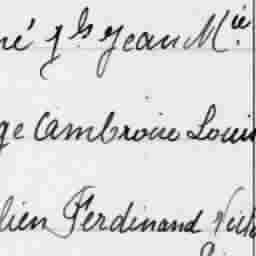 né fs Jean Mie
ge Cambroise Louis
lien Ferdinand Vict